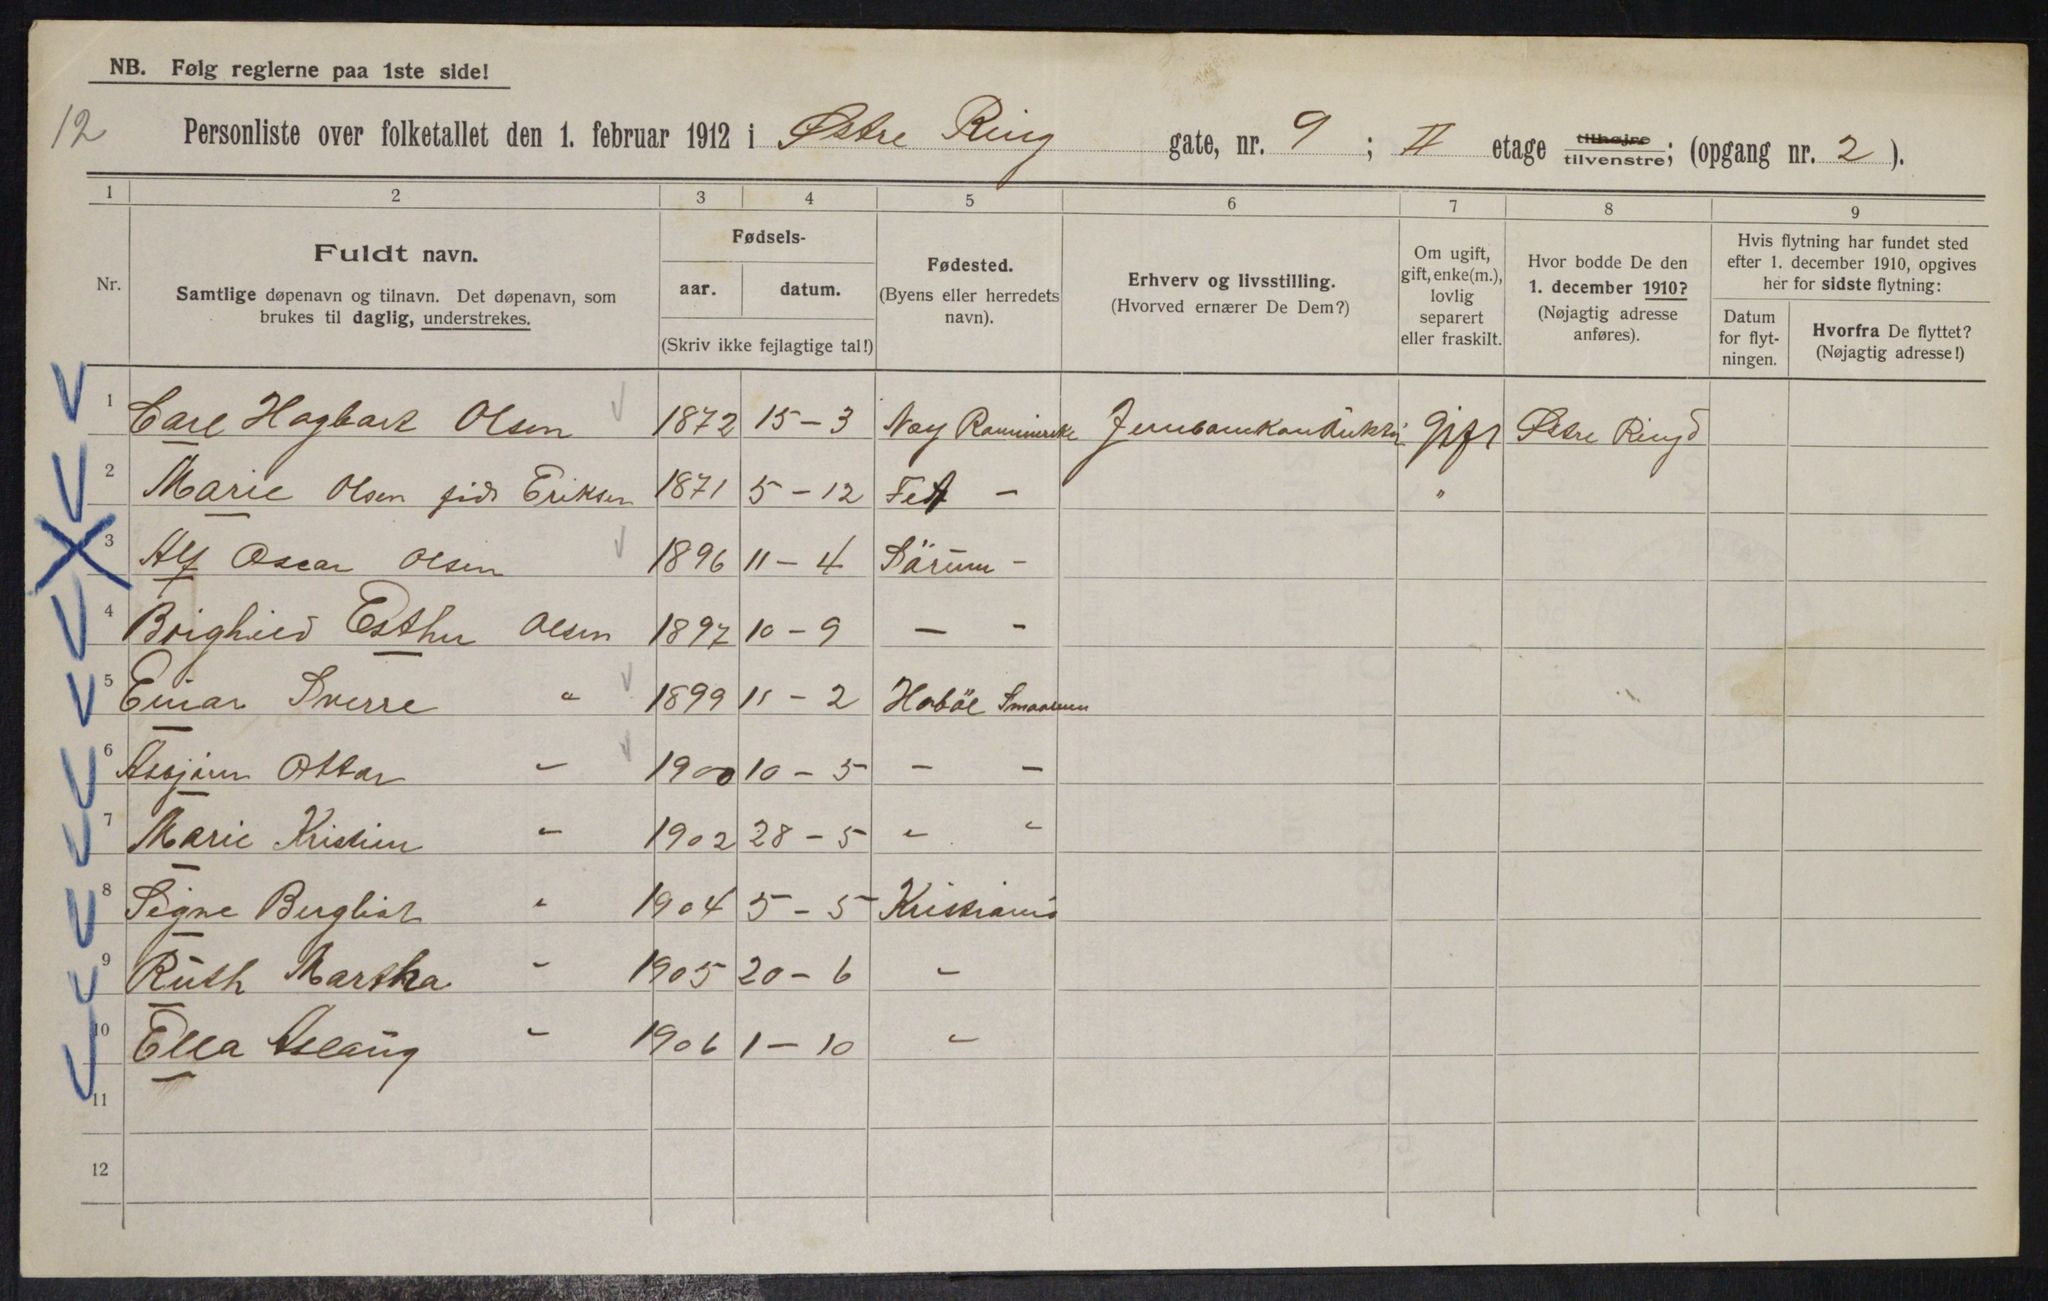 NB. Følg reglerne paa 1ste side!
12
Personliste over folketallet den 1. februar 1912 i Østre Ring gate, nr. 9; II etage tilhøjre tilvenstre; (opgang nr. 2).
1 2 3 4 5 6 7 8 9
Nr.
Fuldt navn.
Samtlige døpenavn og tilnavn. Det døpenavn, som
brukes til daglig, understrekes.
Fødsels-
aar. datum.
(Skriv ikke fejlagtige tal!)
Fødested.
(Byens eller herredets
navn).
Erhverv og livsstilling.
(Hvorved ernærer De Dem?)
Om ugift,
gift, enke(m.),
lovlig
separert
eller fraskilt.
Hvor bodde De den
1. december 1910?
(Nøjagtig adresse
anføres).
Hvis flytning har fundet sted
efter 1. december 1910, opgives
her for sidste flytning:
Datum
for flyt-
ningen.
Hvorfra De flyttet?
(Nøjagtig adresse!)
1 Carl Hagbart Olsen 1872 15-3 gift Østre Ring
2 Marie Olsen født Eriksen 1871 5-12 Fet - "
3 Alf Oscar Olsen 1896 11-4 Sörum -
4 Esther Olsen 1897 10-9 - -
5 Einar Sverre " 1899 11-2 Haböl
6 Asbjörn Ottar " 1900 10-5 - -
7 Marie Kristin " 1902 28-5 " "
8 Signe Bergliot " 1904 5-5 Kristiania
9 Ruth Martha " 1905 20-6 "
10 Ella Aslaug " 1906 1-10 "
11
12